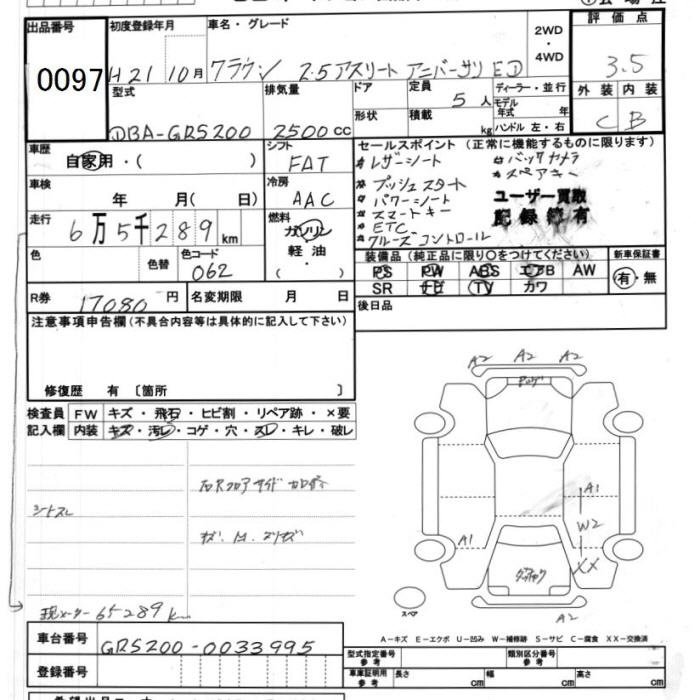 出品番号 0097
初度登録年月 H21 10月
車名・グレード クラウン 2.5アスリート アニバーサリ ED
2WD・4WD
評価点 3.5
外装 C 内装 B
型式 DBA-GRS200
排気量 2500cc
ドア 形状
定員 5人
積載 kg
ディーラー・並行
モデル年式 年
ハンドル 左・右
車歴 自家用・( )
シフト FAT
車検 年 月( 日)
冷房 AAC
走行 6万5千289km
燃料 ガソリン 軽油 ( ・ )
色 色替 色コード 062
R券 17080円
名変期限 月 日
セールスポイント (正常に機能するものに限ります)
レザーシート バックカメラ
スペアキー
プッシュスタート
パワーシート
スマートキー
ETC
クルーズコントロール
ユーザー買取
記録簿有
装備品(純正品に限り○をつけてください)
PS PW ABS エアB AW
SR ナビ TV カワ
新車保証書
有・無
後日品
注意事項申告欄(不具合内容等は具体的に記入して下さい)
修復歴 有 〔箇所 〕
検査員記入欄
FW キズ・飛石・ヒビ割・リペア跡・×要
内装 キズ・汚レ・コゲ・穴・スレ・キレ・破レ
シートスレ
現メーター 65289k
A2 A2 A2
A1
W2
A1
XX
A2
スペア
A-キズ E-エクボ U-凹み W-補修跡 S-サビ C-腐食 XX-交換済
車台番号 GRS200-0033995
登録番号
型式指定番号 参考
類別区分番号 参考
車庫証明用 参考 長さ cm 幅 cm 高さ cm